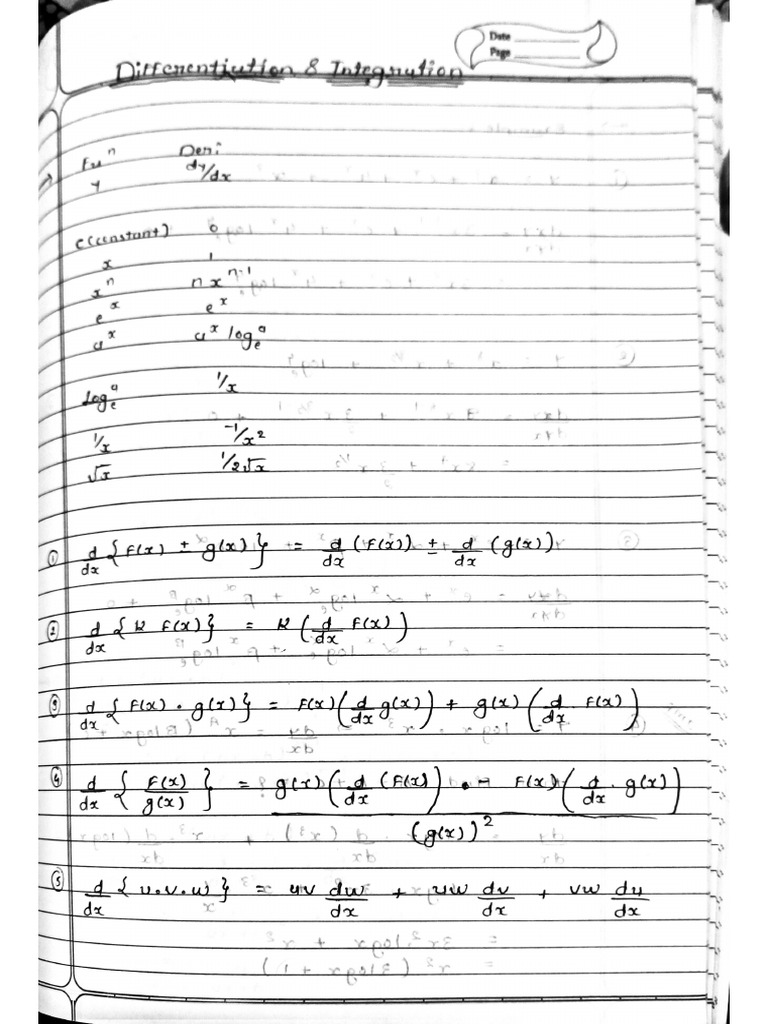 Date
Page
Differentiation & Integration
Fuⁿ Deri
y dy/dx
c (constant) 0
x 1
xⁿ n xⁿ⁻¹
eˣ eˣ
aˣ aˣ logₑᵃ
Logₑᵃ 1/x
1/x -1/x²
√x 1/2√x
① d/dx {F(x) ± g(x)} = d/dx (F(x)) ± d/dx (g(x))
② d/dx {K F(x)} = K (d/dx F(x))
③ d/dx {F(x) · g(x)} = F(x) (d/dx g(x)) + g(x) (d/dx F(x))
④ d/dx {F(x)/g(x)} = g(x) (d/dx (F(x)) - F(x) (d/dx · g(x)) / (g(x))²
⑤ d/dx {u.v.w} = uv dw/dx + uw dv/dx + vw du/dx